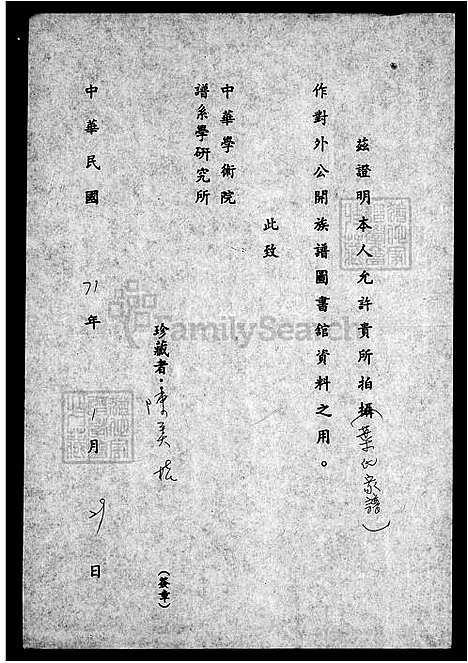 茲證明本人允許貴所拍攝(葉氏家譜)
作對外公開族譜圖書館資料之用。
此致
中華學術院
譜系學研究所
珍藏者：陳美 (簽章)
中華民國 71年 1月 日
FamilySearch